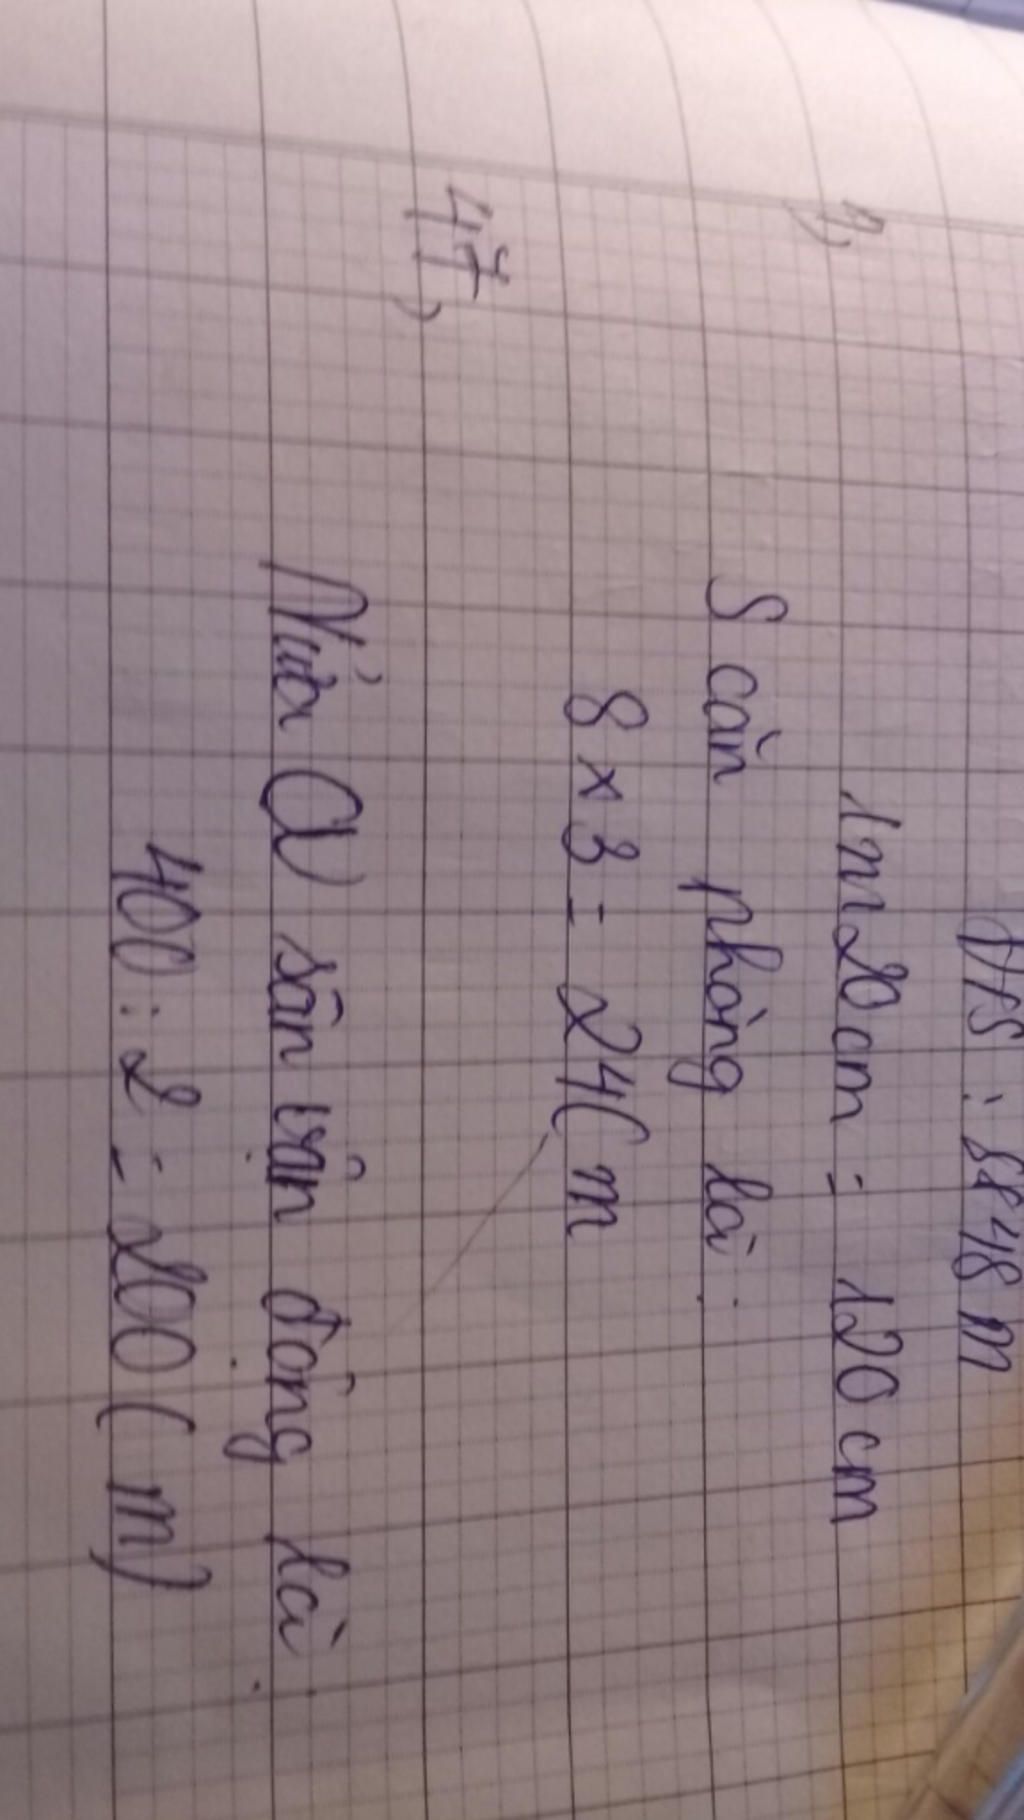 ĐS : 8848 m
1m20cm = 120 cm
S căn phòng là :
8 x 3 = 24 ( m
47,
Nửa CV sân vận động là :
400 : 2 = 200 ( m )